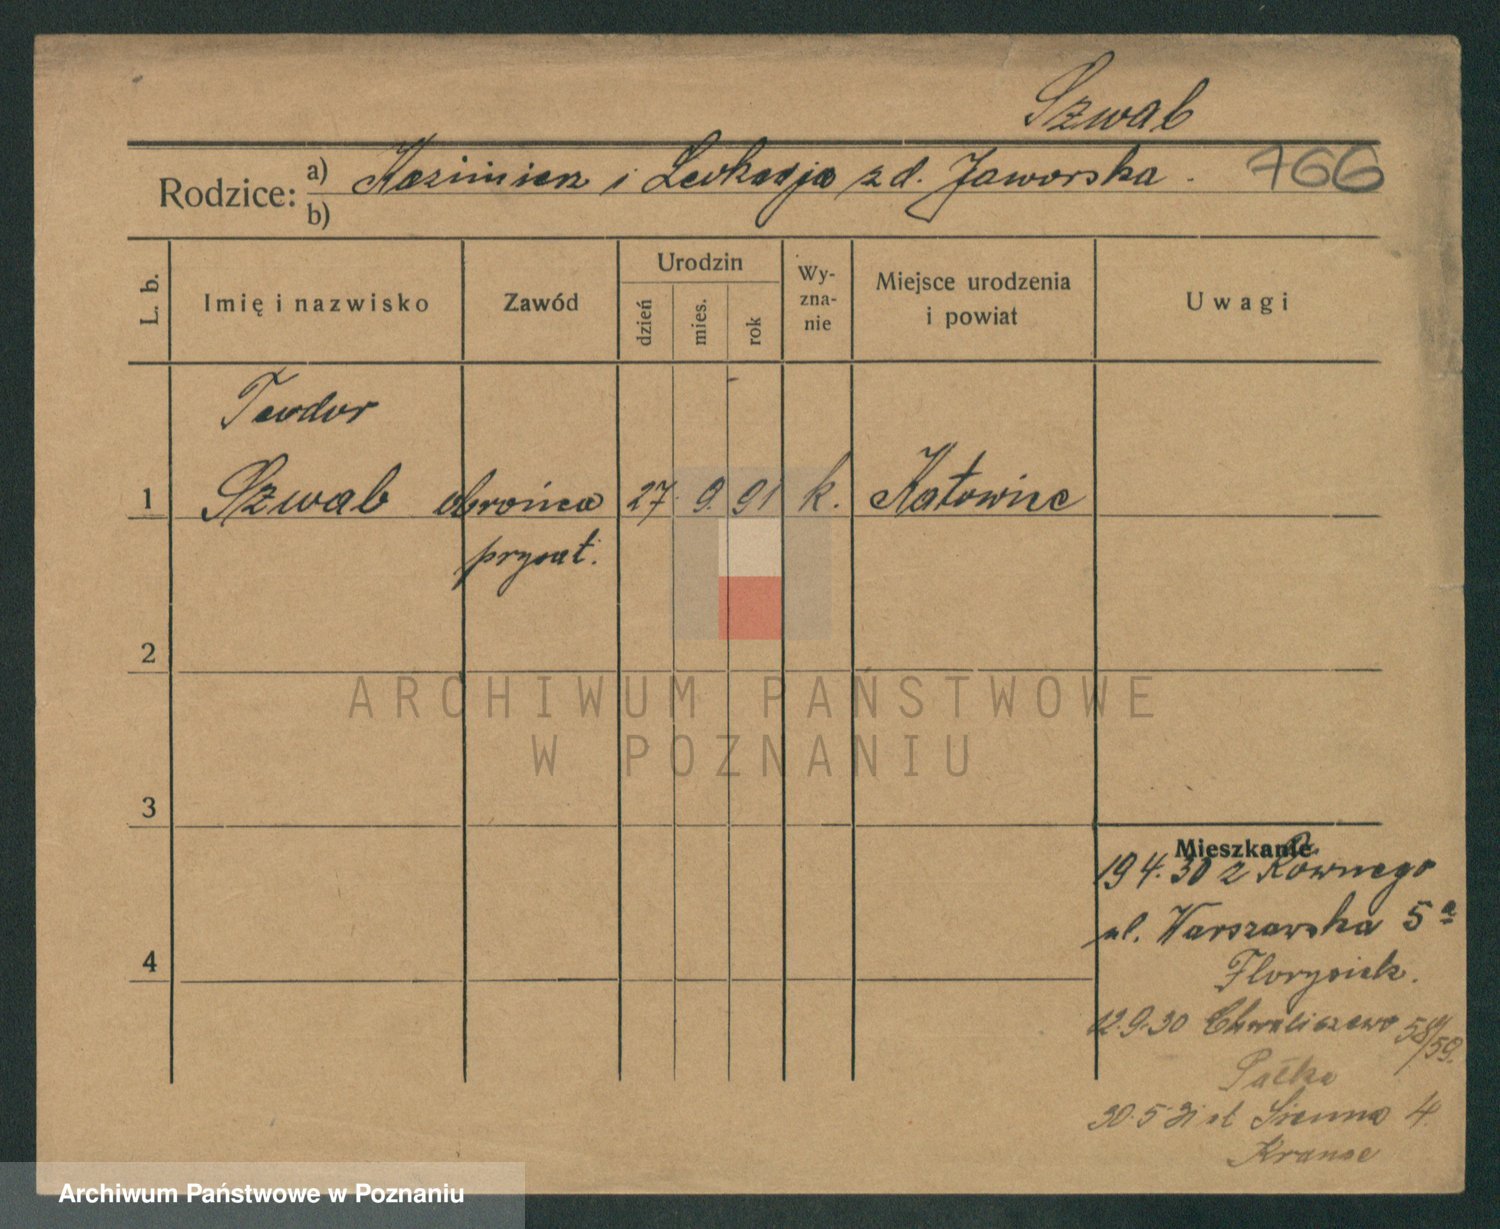 Szwab
Rodzice: a) Kazimierz i Leokadja z d. Jaworska. 766
b)
L. b. Imię i nazwisko Zawód Urodzin dzień mies. rok Wyznanie Miejsce urodzenia i powiat Uwagi
Teodor
1 Szwab obrońca 27. 9. 91 k. Katowice
prywat.
2
ARCHIWUM PAŃSTWOWE
W POZNANIU
3
Mieszkanie
19 4. 30 z Równego
ul. Warszawska 5a
4
Florysiak.
12.9.30 Chwaliszewo 58/59.
Pałka
30.5.31 ul Sienna 4.
Krause
Archiwum Państwowe w Poznaniu